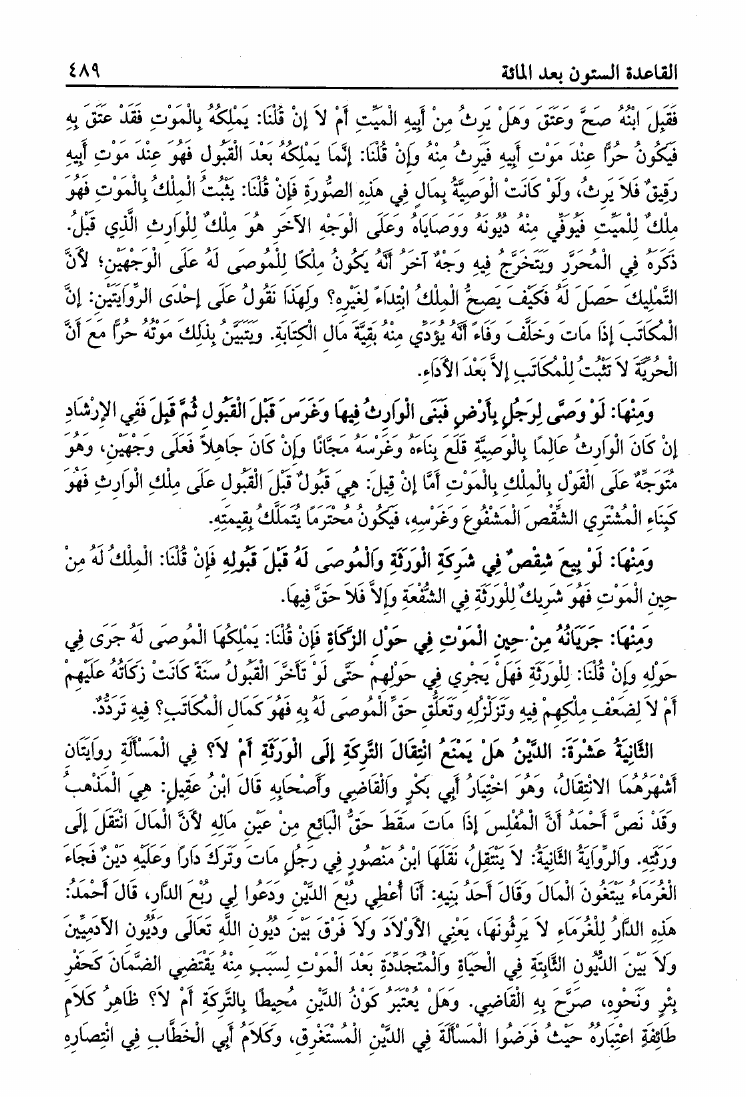 القاعدة الستون بعد المائة ٤٨٩
فَقَبِلَ ابْنُهُ صَحَّ وَعَتَقَ وَهَلْ يَرِثُ مِنْ أَبِيهِ الْمَيِّتِ أَمْ لاَ إِنْ قُلْنَا: يَمْلِكُهُ بِالْمَوْتِ فَقَدْ عَتَقَ بِهِ
فَيَكُونُ حُرًّا عِنْدَ مَوْتِ أَبِيهِ فَيَرِثُ مِنْهُ وَإِنْ قُلْنَا: إِنَّمَا يَمْلِكُهُ بَعْدَ الْقَبُولِ فَهُوَ عِنْدَ مَوْتِ أَبِيهِ
رَقِيقٌ فَلاَ يَرِثُ، وَلَوْ كَانَتْ الْوَصِيَّةُ بِمَالٍ فِي هَذِهِ الصُّورَةِ فَإِنْ قُلْنَا: يَثْبُتُ الْمِلْكُ بِالْمَوْتِ فَهُوَ
مِلْكٌ لِلْمَيِّتِ فَيُوَفِّي مِنْهُ دُيُونَهُ وَوَصَايَاهُ وَعَلَى الْوَجْهِ الآخَرِ هُوَ مِلْكٌ لِلْوَارِثِ الَّذِي قَبْلُ.
ذَكَرَهُ فِي الْمُحَرَّرِ وَيَتَخَرَّجُ فِيهِ وَجْهٌ آخَرُ أَنَّهُ يَكُونُ مِلْكًا لِلْمُوصَى لَهُ عَلَى الْوَجْهَيْنِ؛ لأَنَّ
التَّمْلِيكَ حَصَلَ لَهُ فَكَيْفَ يَصِحُّ الْمِلْكُ ابْتِدَاءً لِغَيْرِهِ؟ وَلِهَذَا نَقُولُ عَلَى إِحْدَى الرِّوَايَتَيْنِ: إِنَّ
الْمُكَاتَبَ إِذَا مَاتَ وَخَلَّفَ وَفَاءً أَنَّهُ يُؤَدِّي مِنْهُ بَقِيَّةَ مَالِ الْكِتَابَةِ. وَيَتَبَيَّنُ بِذَلِكَ مَوْتُهُ حُرًّا مَعَ أَنَّ
الْحُرِّيَّةَ لاَ تَثْبُتُ لِلْمُكَاتَبِ إِلاَّ بَعْدَ الأَدَاءِ.
وَمِنْهَا: لَوْ وَصَّى لِرَجُلٍ بِأَرْضٍ فَبَنَى الْوَارِثُ فِيهَا وَغَرَسَ قَبْلَ الْقَبُولِ ثُمَّ قَبِلَ فَفِي الإِرْشَادِ
إِنْ كَانَ الْوَارِثُ عَالِمًا بِالْوَصِيَّةِ قَلَعَ بِنَاءَهُ وَغَرْسَهُ مَجَّانًا وَإِنْ كَانَ جَاهِلاً فَعَلَى وَجْهَيْنِ، وَهُوَ
مُتَوَجِّهٌ عَلَى الْقَوْلِ بِالْمِلْكِ بِالْمَوْتِ أَمَّا إِنْ قِيلَ: هِيَ قَبُولٌ قَبْلَ الْقَبُولِ عَلَى مِلْكِ الْوَارِثِ فَهُوَ
كَبِنَاءِ الْمُشْتَرِي الشِّقْصَ الْمَشْفُوعَ وَغَرْسِهِ، فَيَكُونُ مُحْتَرَمًا يُتَمَلَّكُ بِقِيمَتِهِ.
وَمِنْهَا: لَوْ بِيعَ شِقْصٌ فِي شَرِكَةِ الْوَرَثَةِ وَالْمُوصَى لَهُ قَبْلَ قَبُولِهِ فَإِنْ قُلْنَا: الْمِلْكُ لَهُ مِنْ
حِينِ الْمَوْتِ فَهُوَ شَرِيكٌ لِلْوَرَثَةِ فِي الشُّفْعَةِ وَإِلاَّ فَلاَ حَقَّ فِيهَا.
وَمِنْهَا: جَرَيَانُهُ مِنْ حِينِ الْمَوْتِ فِي حَوْلِ الزَّكَاةِ فَإِنْ قُلْنَا: يَمْلِكُهَا الْمُوصَى لَهُ جَرَى فِي
حَوْلِهِ وَإِنْ قُلْنَا: لِلْوَرَثَةِ فَهَلْ يَجْرِي فِي حَوْلِهِمْ حَتَّى لَوْ تَأَخَّرَ الْقَبُولُ سَنَةً كَانَتْ زَكَاتُهُ عَلَيْهِمْ
أَمْ لاَ لِضَعْفِ مِلْكِهِمْ فِيهِ وَتَزَلْزُلِهِ وَتَعَلُّقِ حَقِّ الْمُوصَى لَهُ بِهِ فَهُوَ كَمَالِ الْمُكَاتَبِ؟ فِيهِ تَرَدُّدٌ.
الثَّانِيَةُ عَشْرَةَ: الدَّيْنُ هَلْ يَمْنَعُ انْتِقَالَ التَّرِكَةِ إِلَى الْوَرَثَةِ أَمْ لاَ؟ فِي الْمَسْأَلَةِ رِوَايَتَانِ
أَشْهَرُهُمَا الانْتِقَالُ، وَهُوَ اخْتِيَارُ أَبِي بَكْرٍ وَالْقَاضِي وَأَصْحَابِهِ قَالَ ابْنُ عَقِيلٍ: هِيَ الْمَذْهَبُ
وَقَدْ نَصَّ أَحْمَدُ أَنَّ الْمُفْلِسَ إِذَا مَاتَ سَقَطَ حَقُّ الْبَائِعِ مِنْ عَيْنِ مَالِهِ لأَنَّ الْمَالَ انْتَقَلَ إِلَى
وَرَثَتِهِ. وَالرِّوَايَةُ الثَّانِيَةُ: لاَ يَنْتَقِلُ، نَقَلَهَا ابْنُ مَنْصُورٍ فِي رَجُلٍ مَاتَ وَتَرَكَ دَارًا وَعَلَيْهِ دَيْنٌ فَجَاءَ
الْغُرَمَاءُ يَبْتَغُونَ الْمَالَ وَقَالَ أَحَدُ بَنِيهِ: أَنَا أُعْطِي رُبْعَ الدَّيْنِ وَدَعُوا لِي رُبْعَ الدَّارِ، قَالَ أَحْمَدُ:
هَذِهِ الدَّارُ لِلْغُرَمَاءِ لاَ يَرِثُونَهَا، يَعْنِي الأَوْلاَدَ وَلاَ فَرْقَ بَيْنَ دُيُونِ اللَّهِ تَعَالَى وَدُيُونِ الآدَمِيِّينَ
وَلاَ بَيْنَ الدُّيُونِ الثَّابِتَةِ فِي الْحَيَاةِ وَالْمُتَجَدِّدَةِ بَعْدَ الْمَوْتِ لِسَبَبٍ مِنْهُ يَقْتَضِي الضَّمَانَ كَحَفْرِ
بِئْرٍ وَنَحْوِهِ، صَرَّحَ بِهِ الْقَاضِي. وَهَلْ يُعْتَبَرُ كَوْنُ الدَّيْنِ مُحِيطًا بِالتَّرِكَةِ أَمْ لاَ؟ ظَاهِرُ كَلاَمِ
طَائِفَةٍ اعْتِبَارُهُ حَيْثُ فَرَضُوا الْمَسْأَلَةَ فِي الدَّيْنِ الْمُسْتَغْرِقِ، وَكَلاَمُ أَبِي الْخَطَّابِ فِي انْتِصَارِهِ